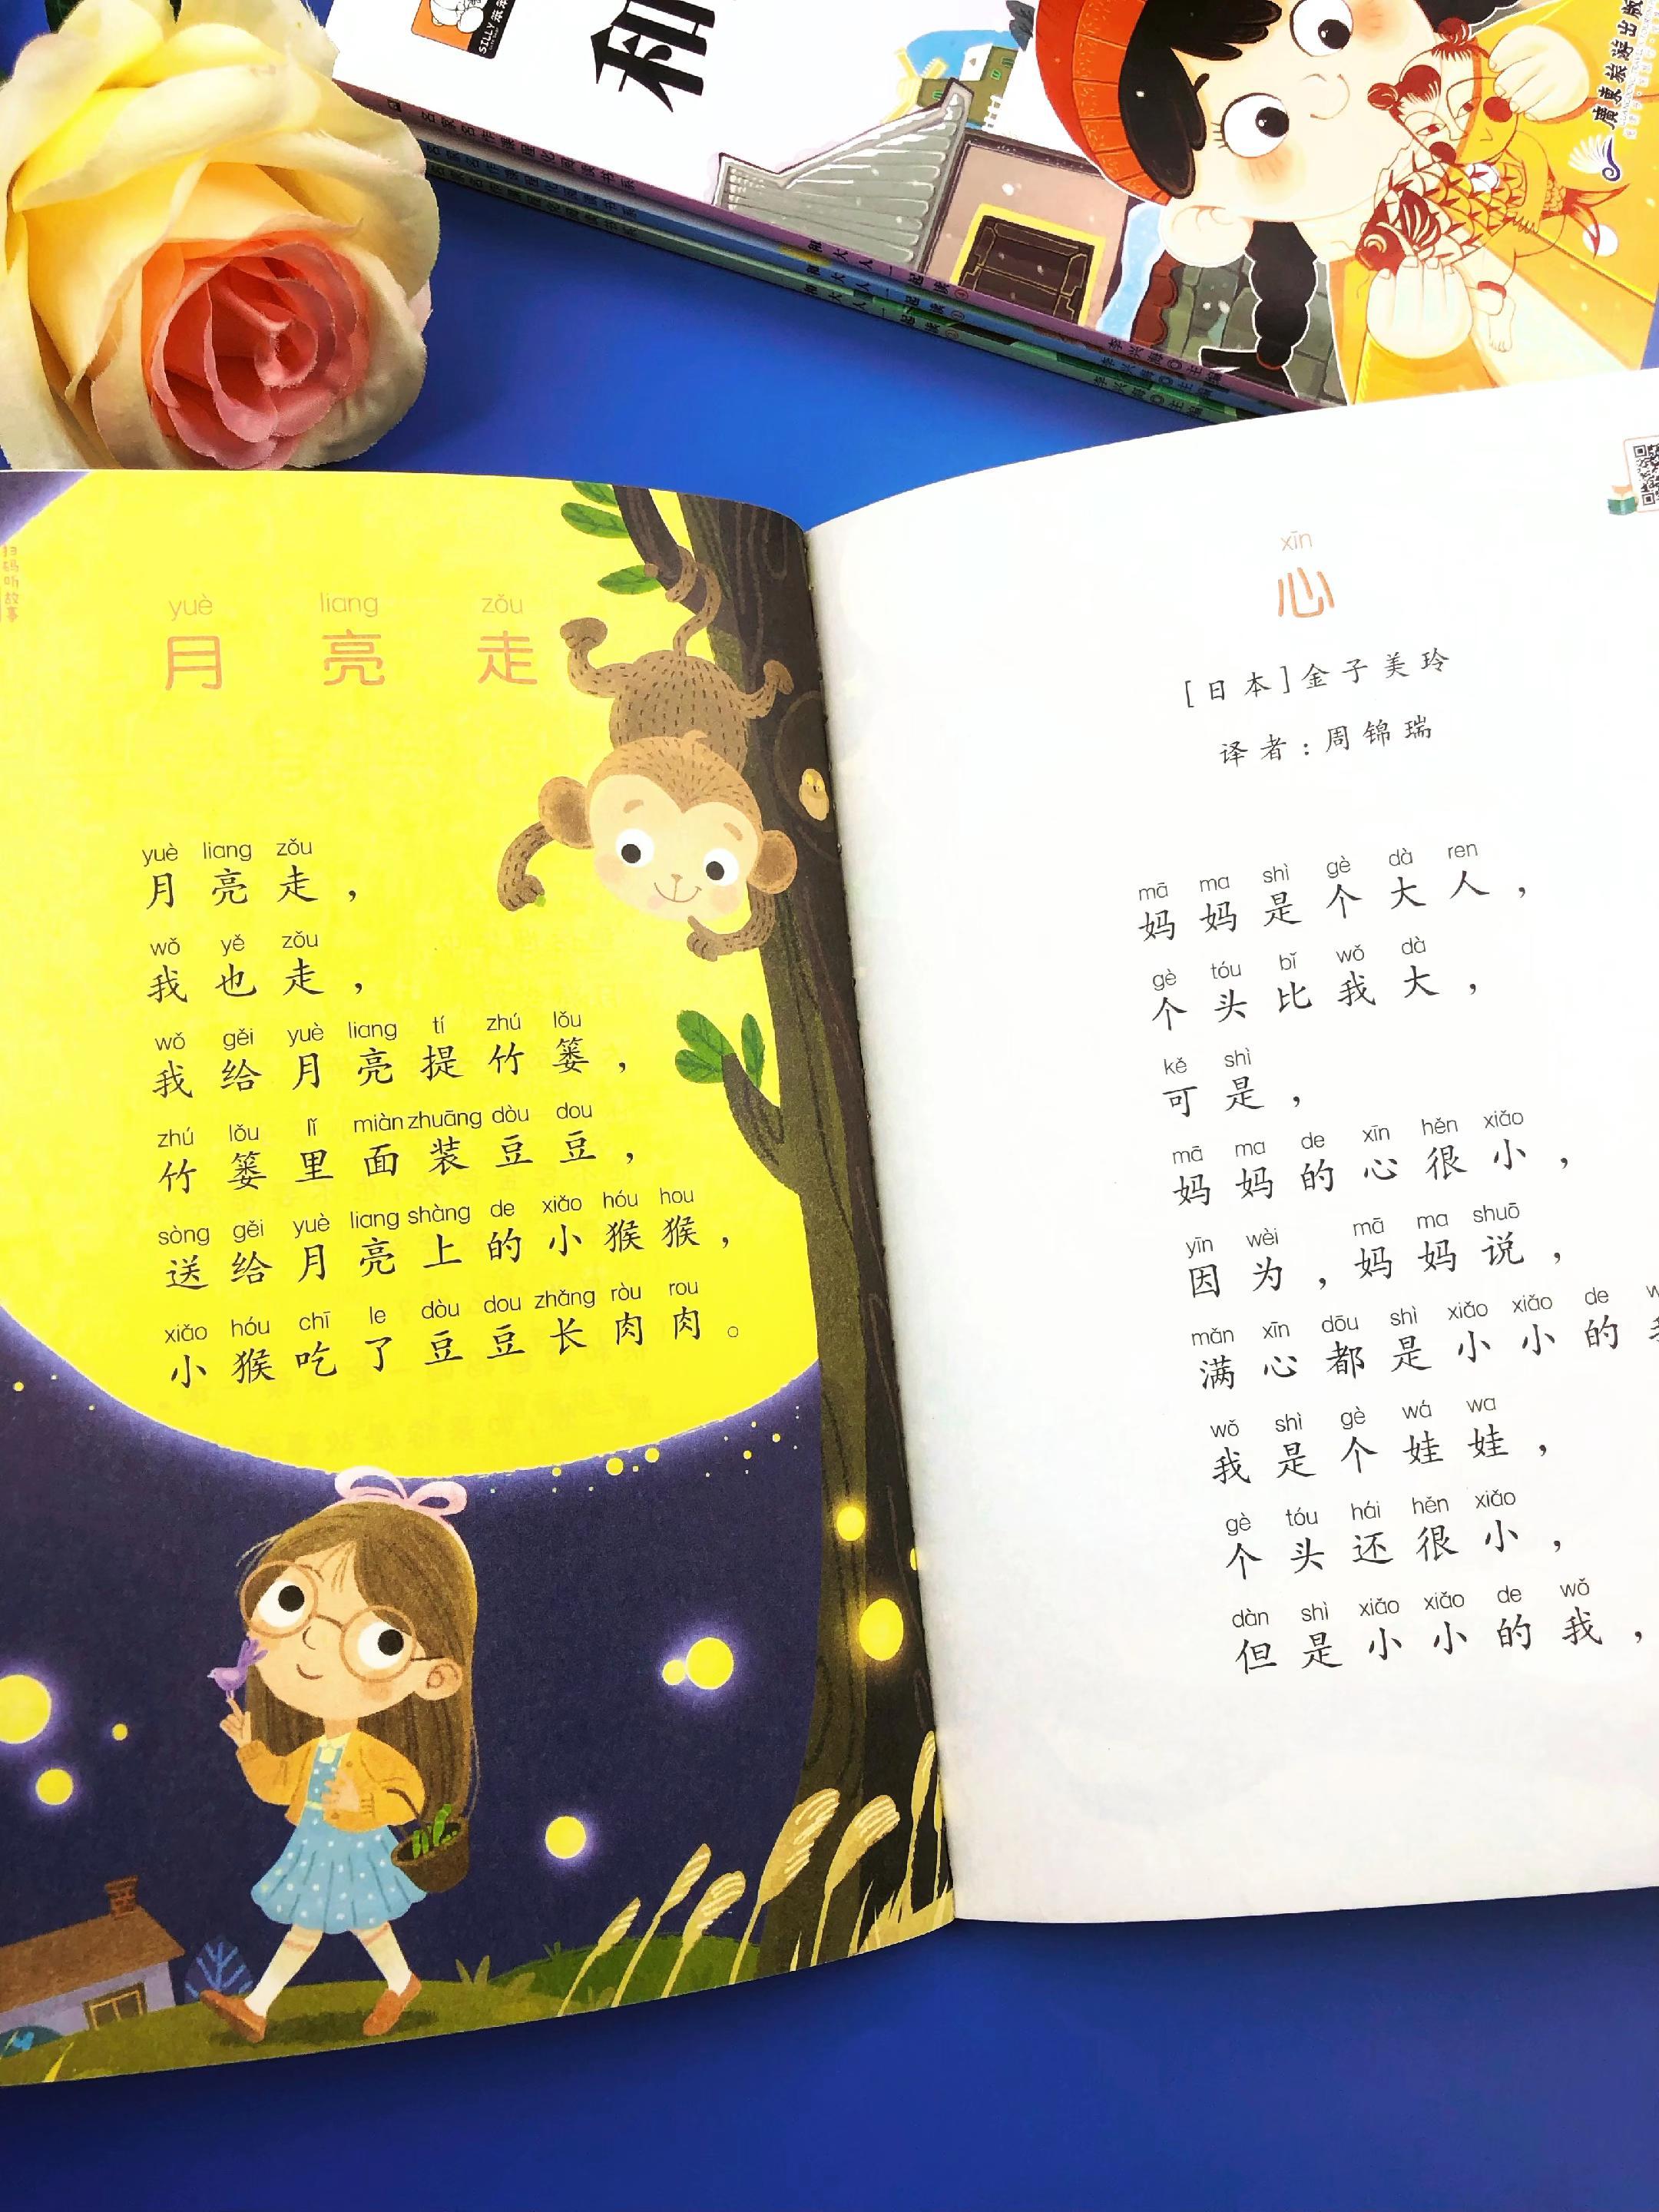 SILLY
和
廣東旅游出版
和大人一起读④
和大人一起读
和大人一起读
李兴海◎主编
李兴海◎主编
李兴海◎主编
扫码听故事
yuè liang zǒu
月亮走
yuè liang zǒu
月亮走，
wǒ yě zǒu
我也走，
wǒ gěi yuè liang tí zhú lǒu
我给月亮提竹篓，
zhú lǒu lǐ miàn zhuāng dòu dou
竹篓里面装豆豆，
sòng gěi yuè liang shàng de xiǎo hóu hou
送给月亮上的小猴猴，
xiǎo hóu chī le dòu dou zhǎng ròu rou
小猴吃了豆豆长肉肉。
xīn
心
[日本]金子美玲
译者：周锦瑞
mā ma shì gè dà ren
妈妈是个大人，
gè tóu bǐ wǒ dà
个头比我大，
kě shì
可是，
mā ma de xīn hěn xiǎo
妈妈的心很小，
yīn wèi mā ma shuō
因为，妈妈说，
mǎn xīn dōu shì xiǎo xiǎo de
满心都是小小的
wǒ shì gè wá wa
我是个娃娃，
gè tóu hái hěn xiǎo
个头还很小，
dàn shì xiǎo xiǎo de wǒ
但是小小的我，